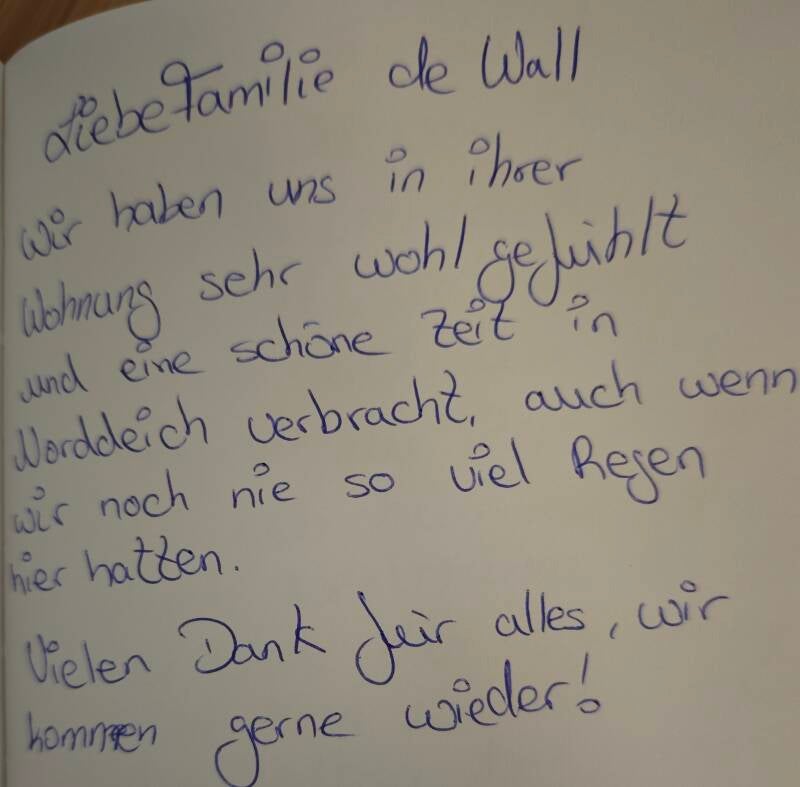 Liebe Familie de Wall
wir haben uns in ihrer
Wohnung sehr wohl gefühlt
und eine schöne Zeit in
Norddeich verbracht, auch wenn
wir noch nie so viel Regen
hier hatten.
Vielen Dank für alles, wir
kommen gerne wieder!